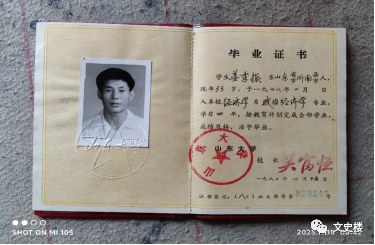 毕业证书
学生姜季振 系山东省沂南县人,
现年35岁,于一九七八年 月
入本校经济学系政治经济学专业,
学序四年,按教育计划完成全部学业,
成绩及格,准予毕业。
山东大学
校长 吴富恒
一九八 年 月 日
证书登记:(八二)山大第字 号
山东大学
SHOT ON MI 10S
文史楼